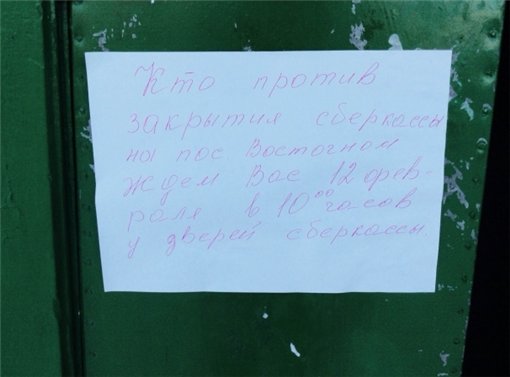 Кто против
закрытия сберкассы
на пос Восточном
ждем Вас 12 фев-
раля в 10⁰⁰ часов
у дверей сберкассы.